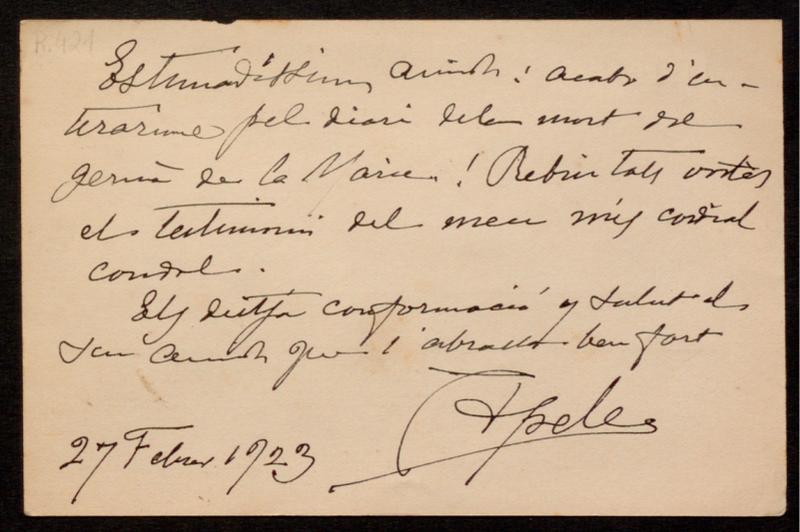 R.421
Estimadíssim amich! acabo d'en-
terarme pel diari dela mort del
germà de la Maria! Rebin tots vostès
el testimoni del meu més cordial
condol.
Els desitja conformació y salut el
seu amich que l'abrassa ben fort
Apeles
27 Febrer 1923